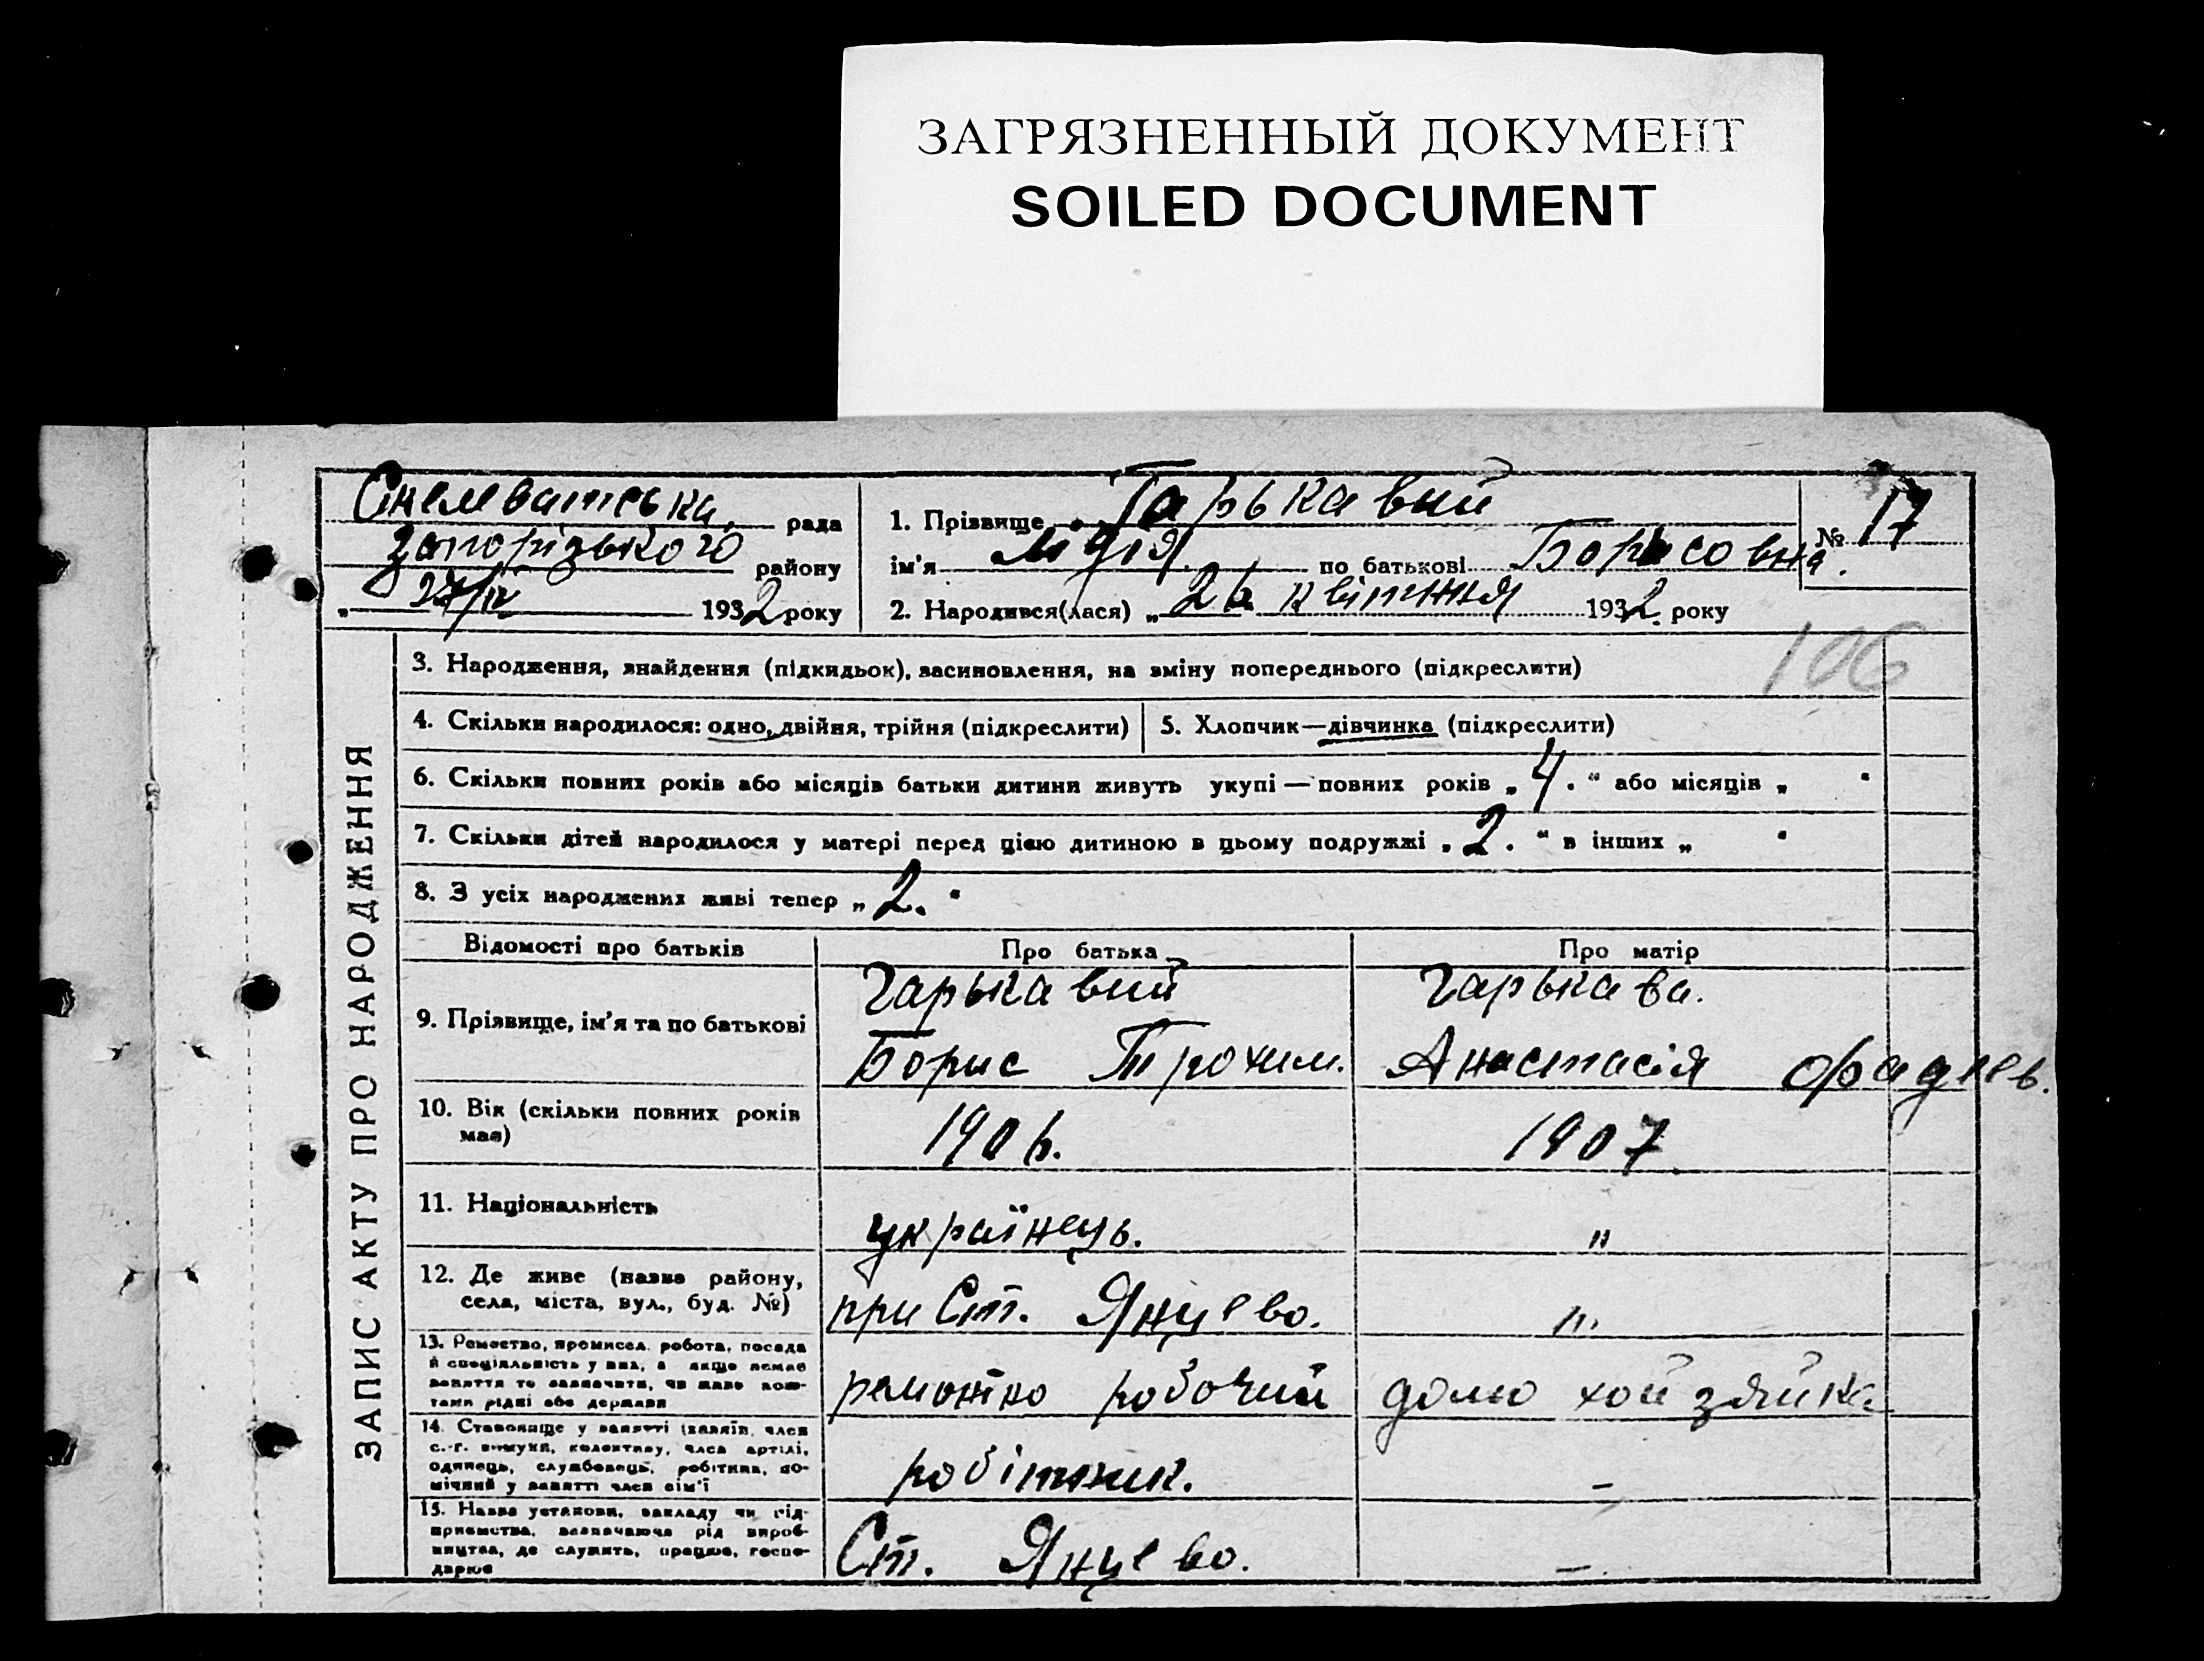 ЗАГРЯЗНЕННЫЙ ДОКУМЕНТ
SOILED DOCUMENT
рада
Запорізького району
„ 27/IV 1932 року
1. Прізвище Гарькавий
ім'я Лідія по батькові Борисовна
2. Народився(лася) „ 26 квітння 1932. року
№ 17
106
ЗАПИС АКТУ ПРО НАРОДЖЕННЯ
3. Народження, знайдення (підкидьок), засиновлення, на зміну попереднього (підкреслити)
4. Скільки народилося: одно, двійня, трійня (підкреслити)
5. Хлопчик—дівчинка (підкреслити)
6. Скільки повних років або місяців батьки дитини живуть укупі — повних років „ 4. “ або місяців „ “
7. Скільки дітей народилося у матері перед цією дитиною в цьому подружжі „ 2. “ в інших „ “
8. З усіх народжених живі тепер „ 2. “
Відомості про батьків
Про батька
Про матір
9. Прізвище, ім'я та по батькові
Гарькавий
Борис Трохим.
Гарькава.
Анастасія Фадеев.
10. Вік (скільки повних років
має)
1906.
1907
11. Національність
українець.
"
12. Де живе (назва району,
села, міста, вул., буд. №)
при Ст. Янцево.
"
13. Ремество, промисел, робота, посада
й спеціяльність у них, а якщо немає
заняття то зазначити, чи живе кош-
тами рідні або держави
ремонтно робочий
домо хойзяйка
14. Становище у занятті (хазяїн, член
с.-г. комуни, колективу, член артілі,
одинець, службовець, робітник, по-
мічний у занятті член сім'ї
робітник.
–
15. Назва установи, закладу чи під-
приємства, зазначаючи рід вироб-
ництва, де служить, працює, госпо-
дарює
Ст. Янцево.
–